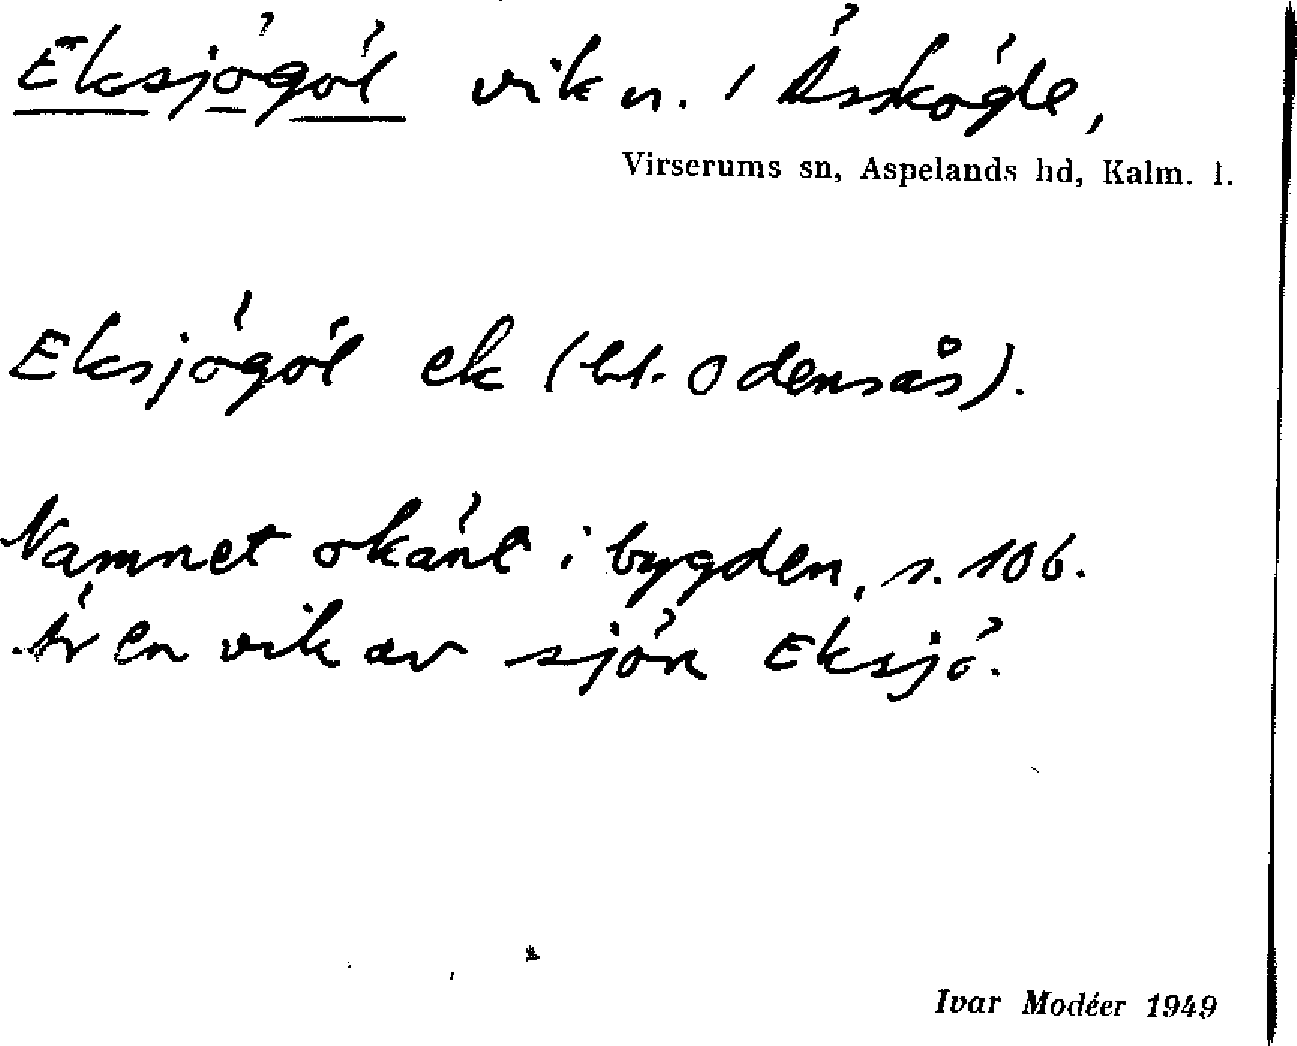 Eksjögöl vik n. i Äskögle,
Virserums sn, Aspelands hd, Kalm. l.
Eksjögöl ek (bl. Odensås).
Namnet okänt i bygden, s. 106.
Är en vik av sjön Eksjö.
Ivar Modéer 1949